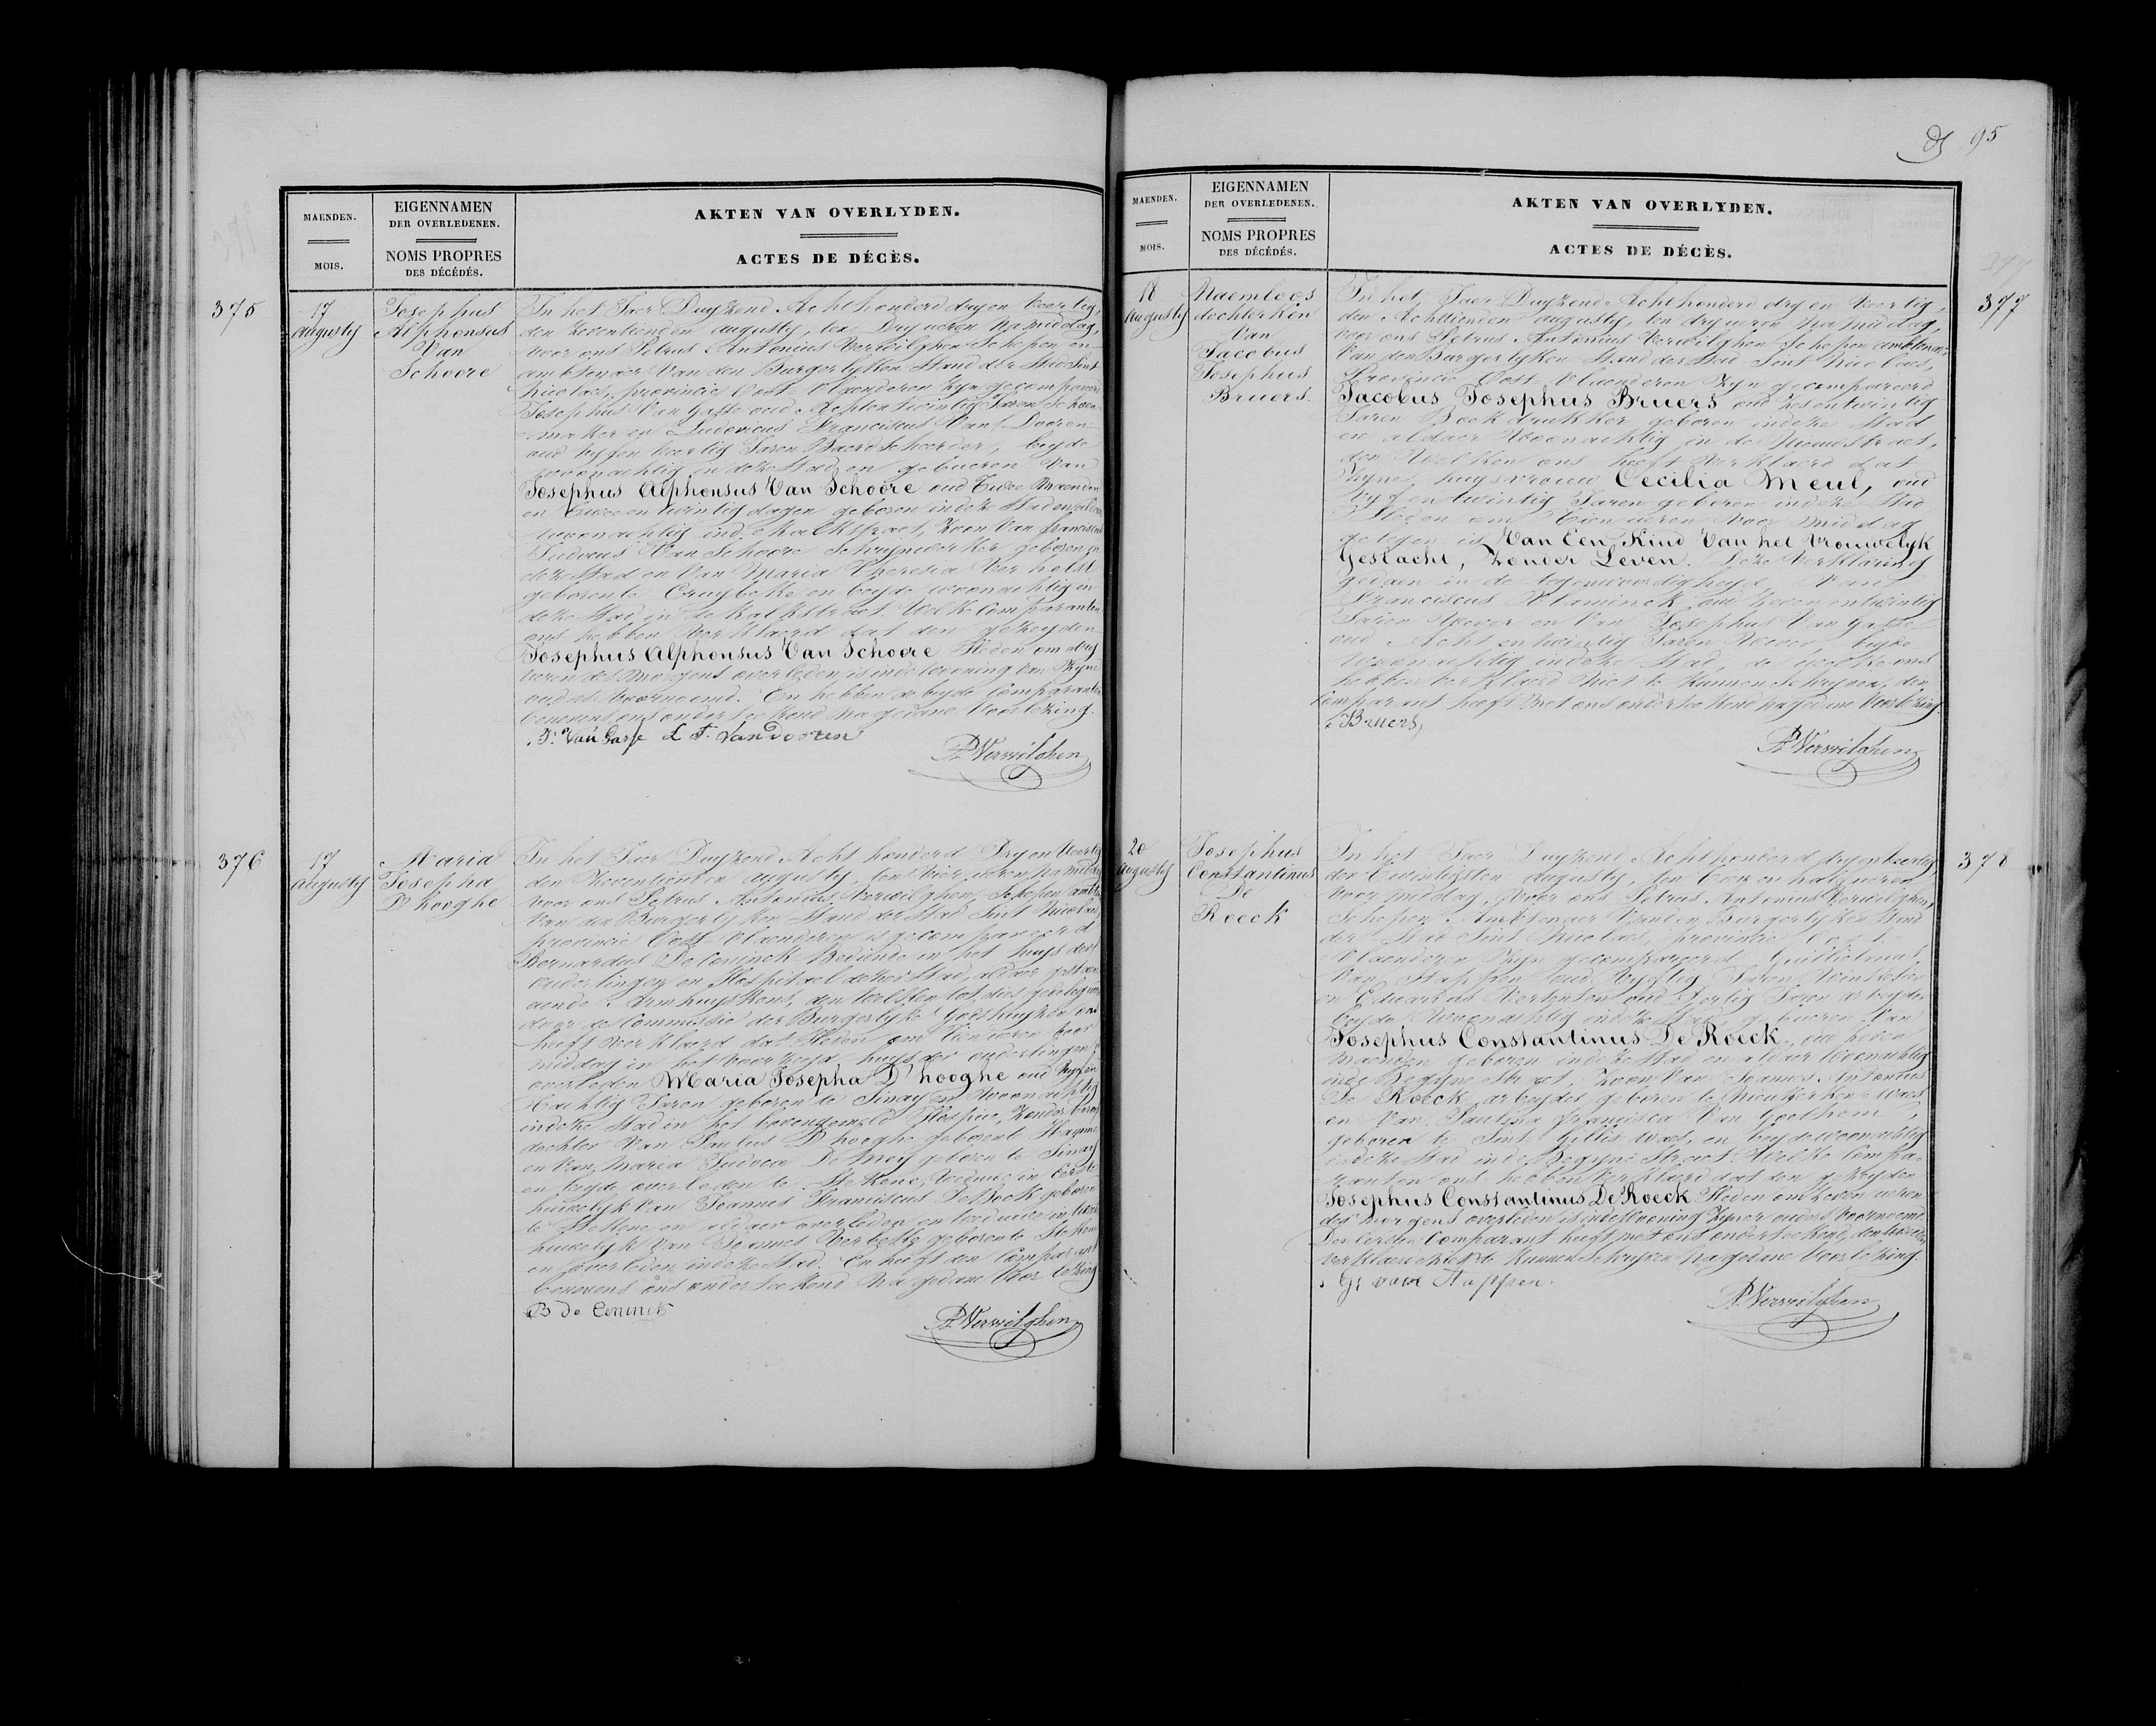 95
MAENDEN.
MOIS.
EIGENNAMEN
DER OVERLEDENEN.
NOMS PROPRES
DES DÉCÉDÉS.
AKTEN VAN OVERLYDEN.
ACTES DE DÉCÈS.
375
17
augusty
Josephus
Alphonsus
Van
Schoore
In het Jaer Duyzend Achthonderd dry en veertig,
den zeventienden augusty, ten Dry ueren Namiddag,
voor ons Petrus Antonius Verwilghen Schepen en
ambtenaer Van den Burgerlyken Stand der Stad Sint
Nicolaes, provincie Oost Vlaenderen zyn gecompareerd
Josephus Van Gasse oud Achtentwintig Jaren Schoen-
maker en Ludovicus Franciscus Van Dooren
oud vyfenveertig Jaren Baerdscheerder, beyde
woonachtig in deze Stad en gebueren Van
Josephus Alphonsus Van Schoore oud Twee Maenden
en Twee en twintig dagen geboren in deze Stad en
woonachtig in de Kalkstraet, Zoon Van Franciscus
Ludovicus Van Schoore Schrynwerker geboren in
deze Stad en Van Maria Theresia Verhelst
geboren te Cruybeke en beyde woonachtig in
deze Stad in de Kalkstraet. Welke Comparanten
ons hebben Verklaerd dat den gezeyden
Josephus Alphonsus Van Schoore Heden om dry
ueren des Morgens overleden is in de wooning Van Zyne
ouders voornoemd. En hebben de beyde Comparanten
benevens ons onderteekend Na gedane Voorlezing.
J. Van Gasse L F. Van dooren
PVerwilghen
376
17
augusty
Maria
Josepha
D'hooghe
In het Jaer Duyzend Acht honderd Dry en Veertig
den Zeventienden augusty, ten vier ueren namiddag
voor ons Petrus Antonius Verwilghen, Schepen ambtenaer
Van den Burgerlyken Stand der Stad Sint Nicolaes,
provincie Oost Vlaenderen is gecompareerd
Bernardus De Coninck Bediende in het huys der
ouderlingen en Hospitael dezer Stad, aldaer gestaen
aende Armhuysstraet, den welken tot dies gedelegueerd
door de Commissie der Burgerlyke Godshuyzen ons
heeft Verklaerd dat Heden om Tien ueren voor
middag in het voorzeyd huys der ouderlingen is
overleden Maria Josepha D'hooghe oud vyf en
tachtig Jaren geboren te Sinay en woonachtig
in deze Stad in het bovengemeld Hospice, zonder beroep
dochter Van Paulus D'hooghe geboren te
en Van Maria Judoca De Mey geboren te Sinay
en beyde overleden te Stekene, Weduwe in eerste
huwelyk Van Joannes Franciscus De Bock geboren
te Stekene en aldaer overleden en Weduwe in tweede
huwelyk Van Joannes Verbeke geboren te Stekene
en overleden in deze Stad. En heeft den Comparant
benevens ons onderteekend Na gedane Voorlezing
B De Coninck
PVerwilghen
MAENDEN.
MOIS.
EIGENNAMEN
DER OVERLEDENEN.
NOMS PROPRES
DES DÉCÉDÉS.
AKTEN VAN OVERLYDEN.
ACTES DE DÉCÈS.
377
18
Augusty
Naemloos
dochterken
Van
Jacobus
Josephus
Bruers.
In het Jaer Duyzend Achthonderd dry en Veertig,
den Achttienden augusty, ten dry ueren Na Middag,
voor ons Petrus Antonius Verwilghen Schepen ambtenaer
Van den Burgerlyken Stand der Stad Sint Nicolaes,
Provincie Oost Vlaenderen Zyn gecompareerd
Jacobus Josephus Bruers oud zesentwintig
Jaren Boekdrukker geboren in deze Stad
en aldaer Woonachtig in de Nieuwstraet,
den Welken ons heeft Verklaerd dat
Zyne huysvrouw Cecilia Meul, oud
vyf en twintig Jaren geboren in deze Stad
Heden om Tien ueren Voor Middag
gelegen is Van Een Kind Van het Vrouwelyk
Geslacht, Zonder Leven. Deze Verklaring
gedaen in de tegenwoordigheyd Van
Franciscus Vlaminck oud zevenentwintig
Jaren Wever en Van Josephus Van Gasse
oud Acht en twintig Jaren Wever, beyde
Woonachtig in deze Stad, de welke ons
hebben verklaerd Niet te Kunnen Schryven, den
Comparant heeft Met ons onderteekend na gedane Voorlezing.
Bruers
PVerwilghen
378
20
Augusty
Josephus
Constantinus
De
Roeck
In het Jaer Duyzend Achthonderd dry en Veertig
den Twintigsten Augusty, ten Tien en half ueren
voormiddag, Voor ons Petrus Antonius Verwilghen,
Schepen Ambtenaer Van den Burgerlyken Stand
der Stad Sint Nicolaes, provincie Oost-
Vlaenderen Zyn gecompareerd Guillielmus
Van Stappen oud Vyftig Jaren Winkelier
en Eduardus Vertenten oud Dertig Jaren arbeyder
beyde Woonachtig in deze Stad gebueren Van
Josephus Constantinus De Roeck, oud
Maenden geboren in deze Stad en aldaer Woonachtig
in de Begyne Straet, Zoon Van Joannes Antonius
De Roeck arbeyder geboren te Nieukerken-Waes
en Van Paulina Francisca Van Goethem
geboren te Sint Gillis Waes, en beyde Woonachtig
in deze Stad in de Begyne Straet. Welke Compa-
ranten ons hebben Verklaerd dat den gezeyden
Josephus Constantinus De Roeck Heden om Zeven ueren
des morgens overleden is in de Wooning Zyner ouders Voornoemd.
Den eersten Comparant heeft met ons onderteekend, den tweeden
verklaerde Niet te Kunnen Schryven Na gedane Voorlezing.
G. van Stappen.
PVerwilghen